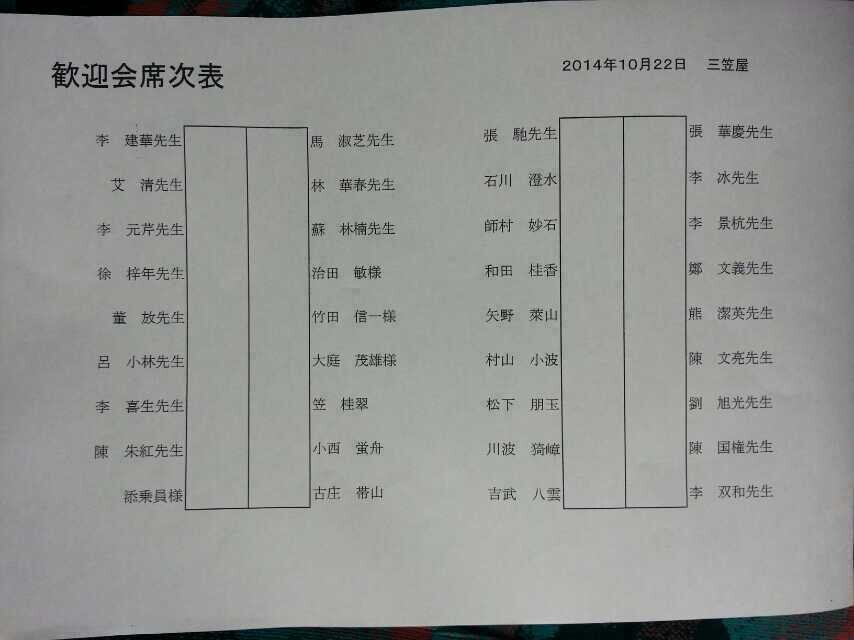 歓迎会席次表
2014年10月22日 三笠屋
李 建華先生 馬 淑芝先生 張 馳先生 張 華慶先生
艾 清先生 林 華春先生 石川 澄水 李 冰先生
李 元芹先生 蘇 林楠先生 師村 妙石 李 景杭先生
徐 梓年先生 治田 敏様 和田 桂香 鄭 文義先生
董 放先生 竹田 信一様 矢野 萊山 熊 潔英先生
呂 小林先生 大庭 茂雄様 村山 小波 陳 文亮先生
李 喜生先生 笠 桂翠 松下 朋玉 劉 旭光先生
陳 朱紅先生 小西 蛍舟 川波 猗嶂 陳 国権先生
添乗員様 古庄 帯山 吉武 八雲 李 双和先生